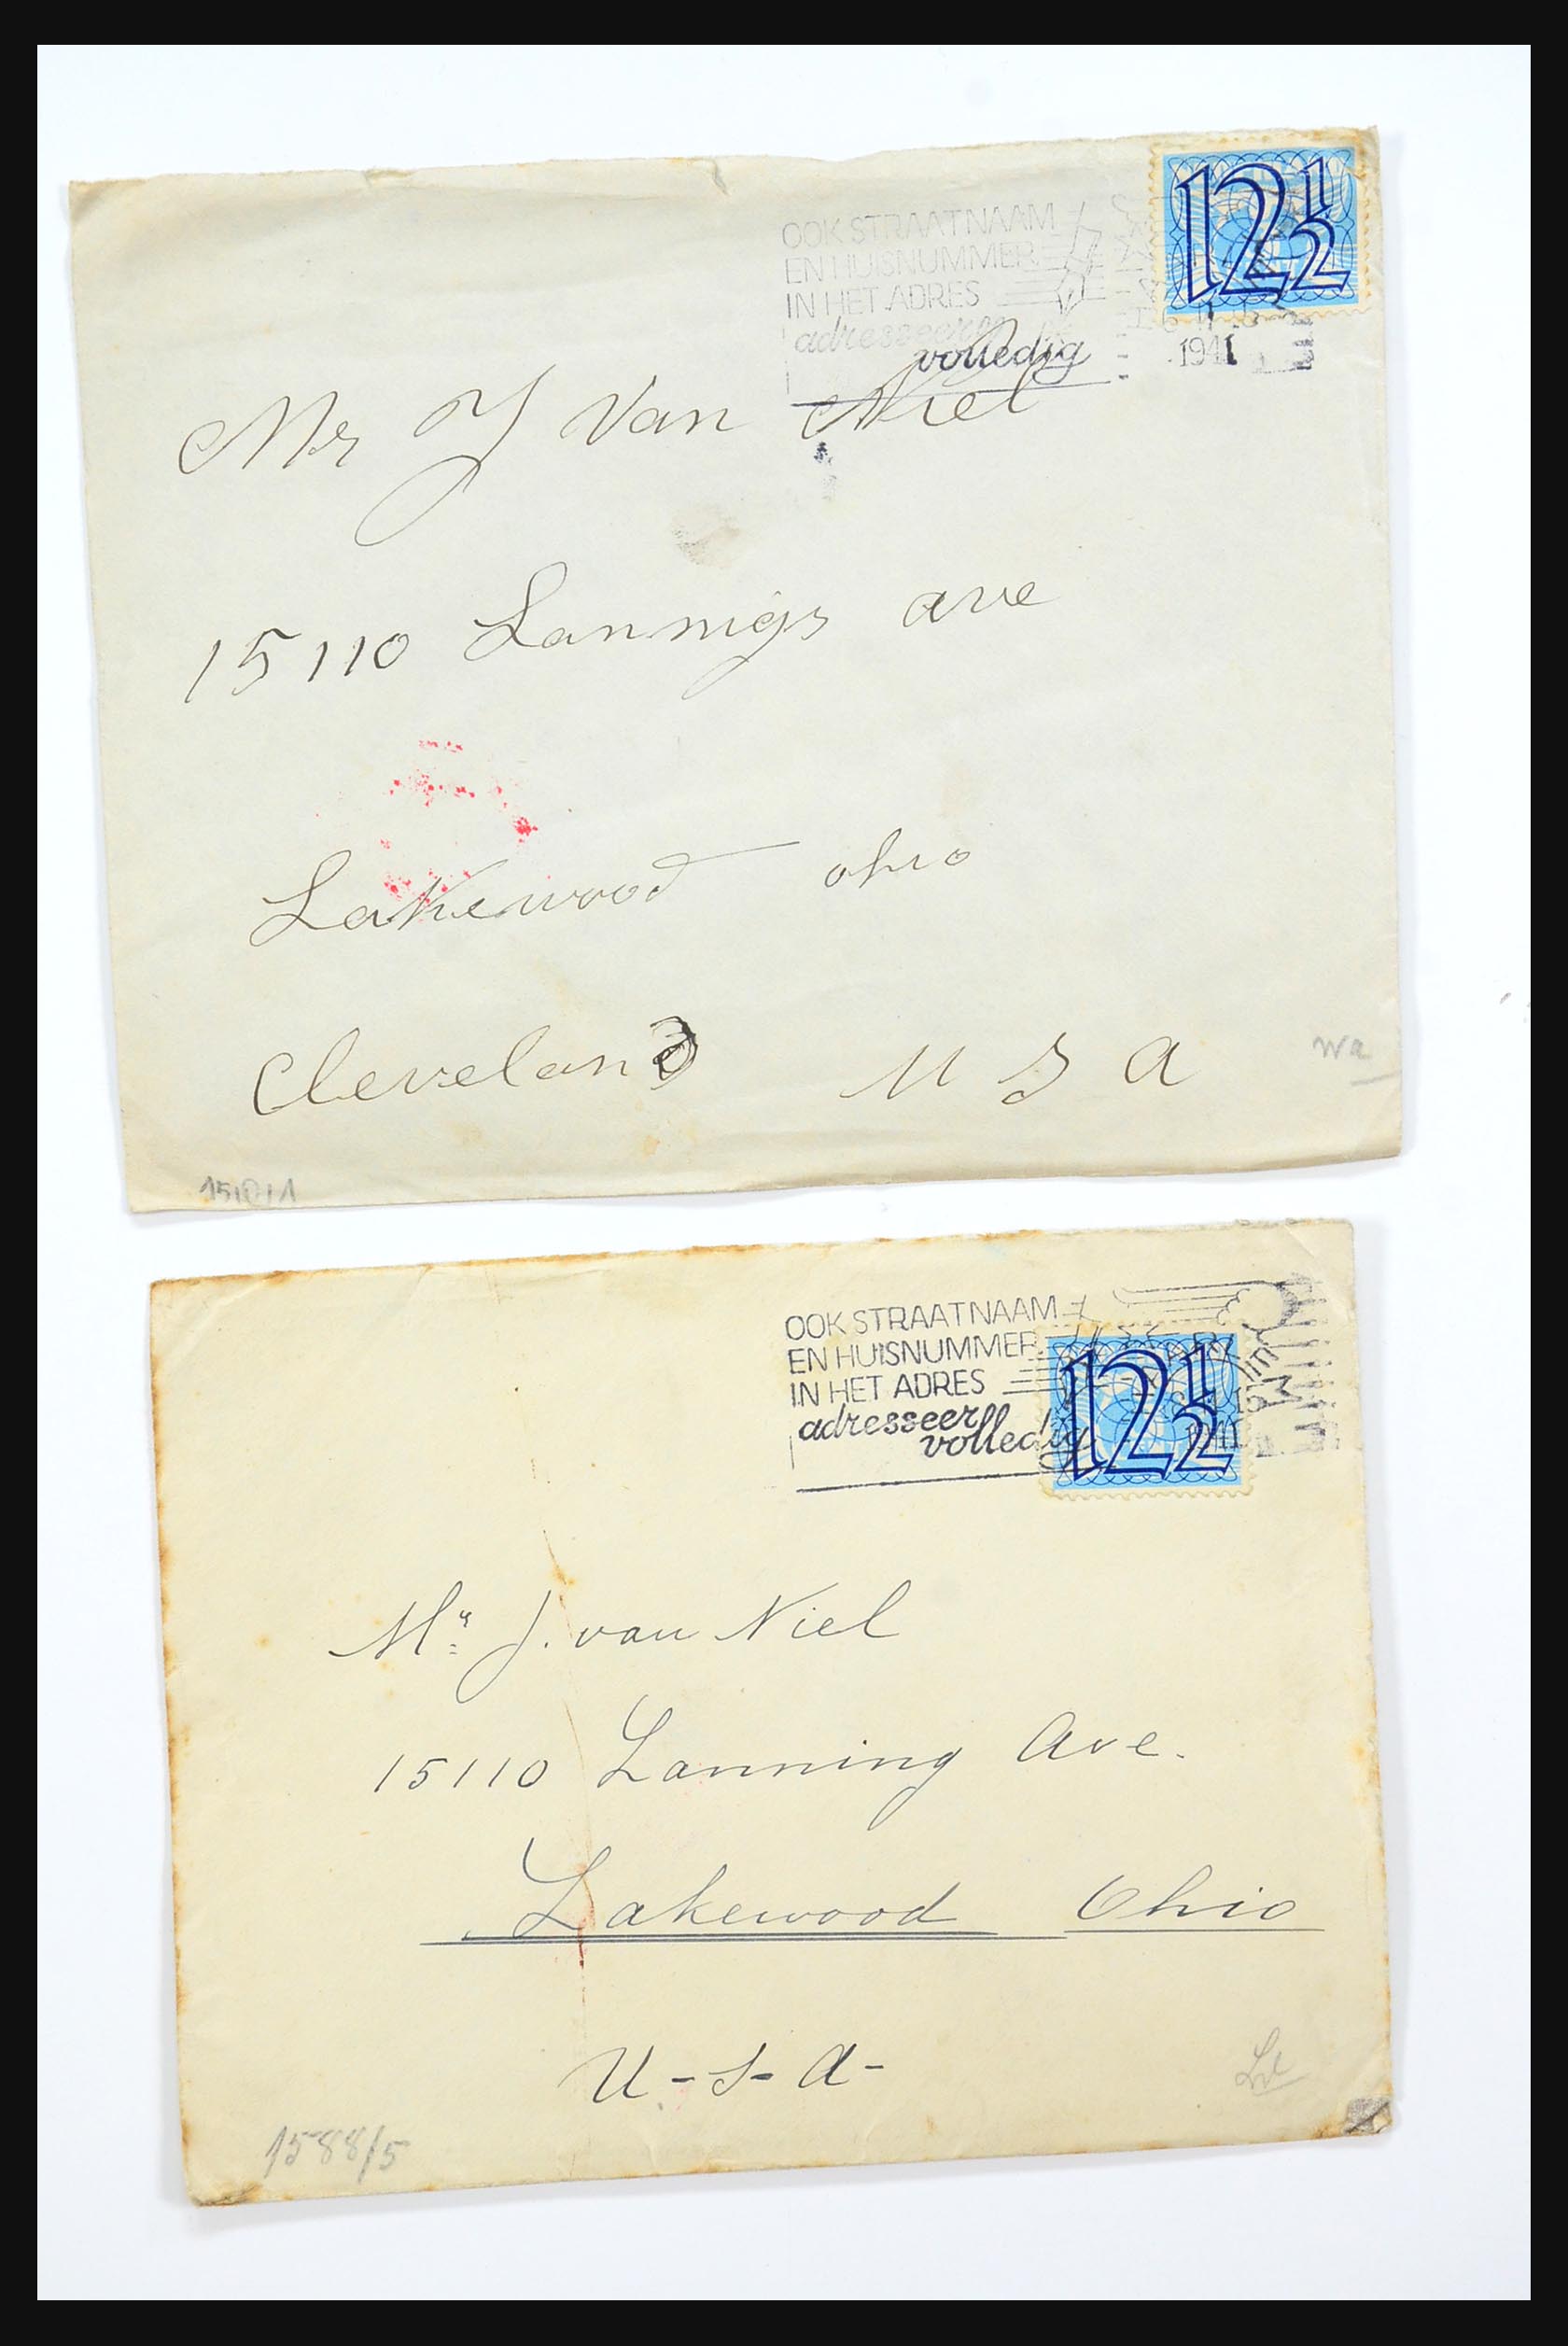 OOK STRAATNAAM
EN HUISNUMMER
IN HET ADRES
adresseer
volledig
12½
1941
Mr J Van Niel
15110 Lannigs ave
Lakewood ohio
Cleveland U S A
Wa
OOK STRAATNAAM
EN HUISNUMMER
IN HET ADRES
adresseer
volledig
12½
Mr. J. van Niel
15110 Lanning Ave.
Lakewood Ohio
U-S-A-
1588/5